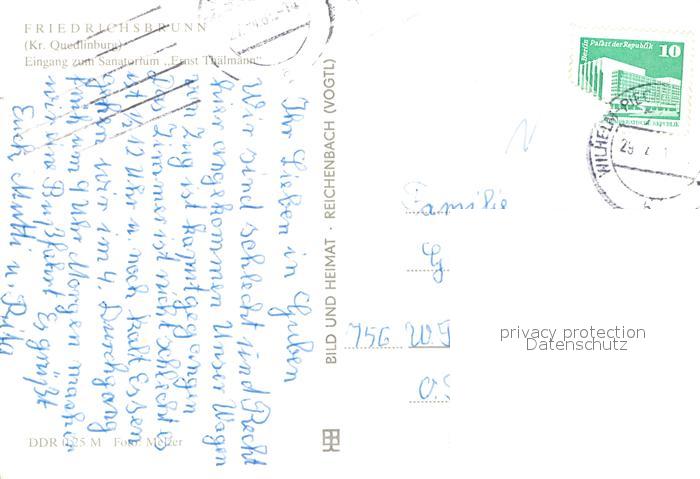 FRIEDRICHSBRUNN
(Kr. Quedlinburg)
Eingang zum Sanatorium „Ernst Thälmann"
Ihr Lieben in Guben
Wir sind schlecht und Recht
hier angekommen Unser Wagen
am Zug ist kaputgegangen
Das Zimmer ist nicht schlecht es
ist 12 Uhr u. noch kalt Essen
gehen wir im 4. Durchgang
früh um 9 Uhr Morgen machen
wir ine Busfahrt Es grüßt
Euch Mutti u.
DDR 0,25 M Foto: Melzer
BILD UND HEIMAT · REICHENBACH (VOGTL)
Berlin Palast der Republik
10
WILHELM-PIE
Familie
G
756 W.
privacy protection
Datenschutz